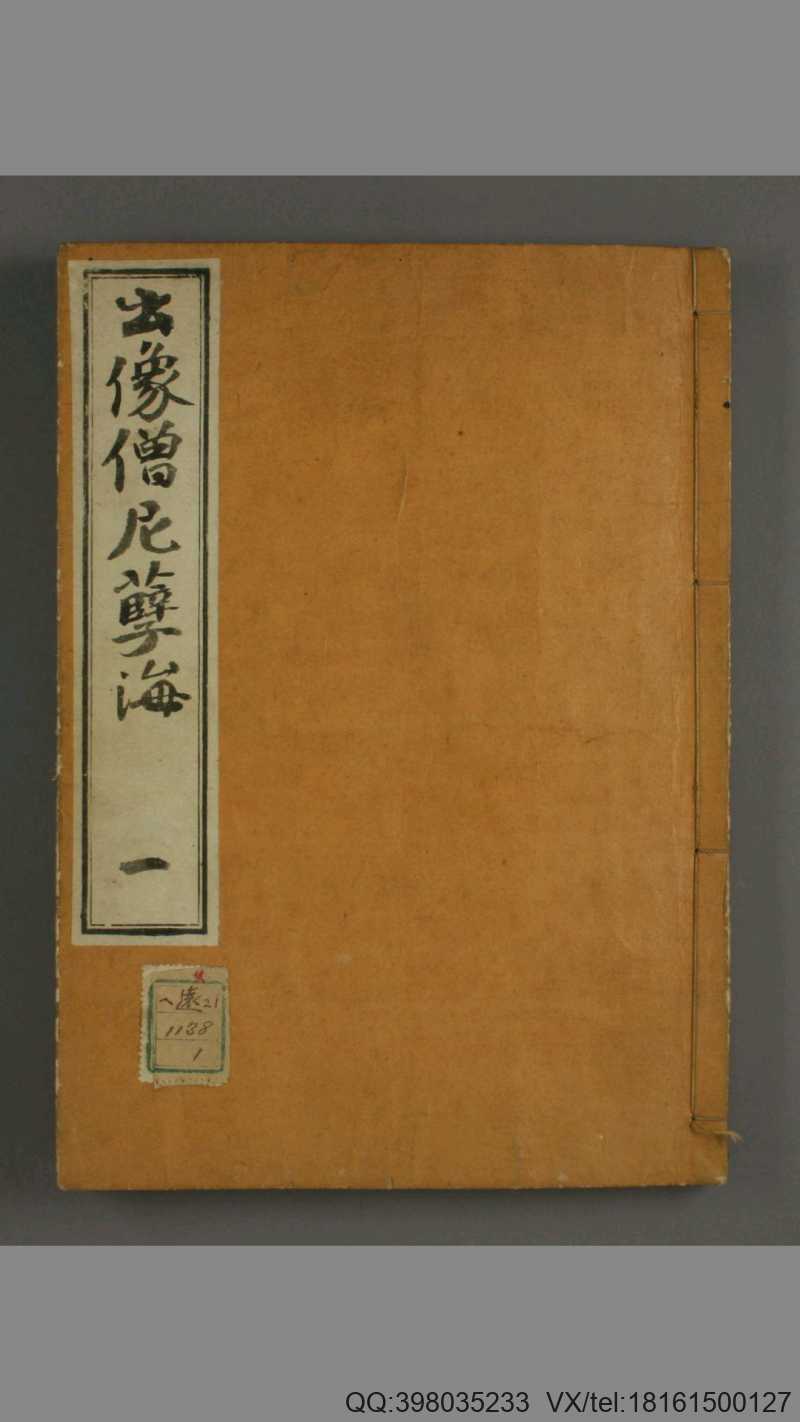 出像僧尼孽海
一
へ遠21
1138
1
QQ:398035233 VX/tel:18161500127